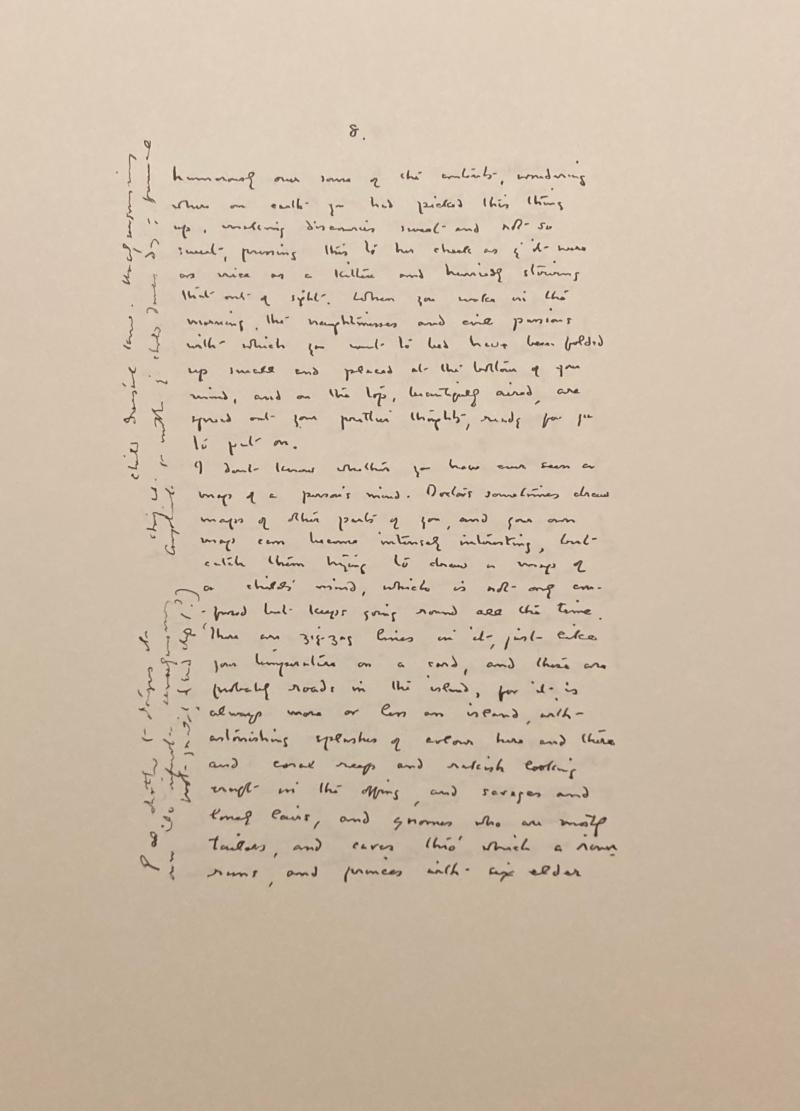 8.
humorously over some of the contents, wondering
where on earth you had picked this thing
up, making discoveries sweet and not so
sweet, pressing this to her cheek as if it were
as nice as a kitten and hurriedly stowing
that out of sight. When you wake in the
morning, the naughtinesses and evil passions
with which you went to bed have been folded
up small and placed at the bottom of your
mind, and on the top, beautifully aired, are
spread out your prettier thoughts, ready for you
to put on.
I don't know whether you have ever seen a
map of a person's mind. Doctors sometimes draw
maps of other parts of you, and your own
map can become intensely interesting, but
catch them trying to draw a map of
a child's mind, which is not only con-
-fused but keeps going round all the time.
There are zig-zag lines in it, just like
your temperature on a card, and these are
probably roads in the island, for it is
always more or less an island, with
astonishing splashes of colour here and there
and coral reefs and rakish looking
craft in the offing, and savages and
lonely lairs, and gnomes who are mostly
tailors, and caves thro' which a river
runs, and princes with six elder